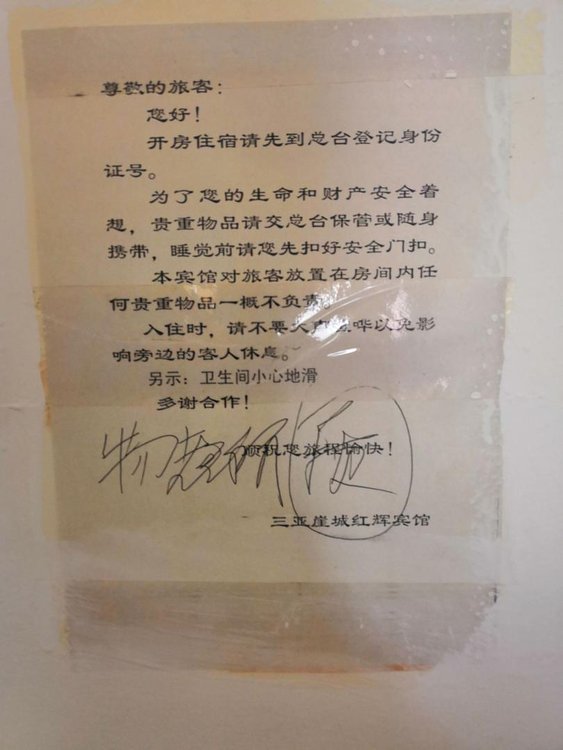 尊敬的旅客：
您好！
开房住宿请先到总台登记身份
证号。
为了您的生命和财产安全着
想，贵重物品请交总台保管或随身
携带，睡觉前请您先扣好安全门扣。
本宾馆对旅客放置在房间内任
何贵重物品一概不负责。
入住时，请不要大声喧哗以免影
响旁边的客人休息。
另示：卫生间小心地滑
多谢合作！
顺祝您旅程愉快！
三亚崖城红辉宾馆